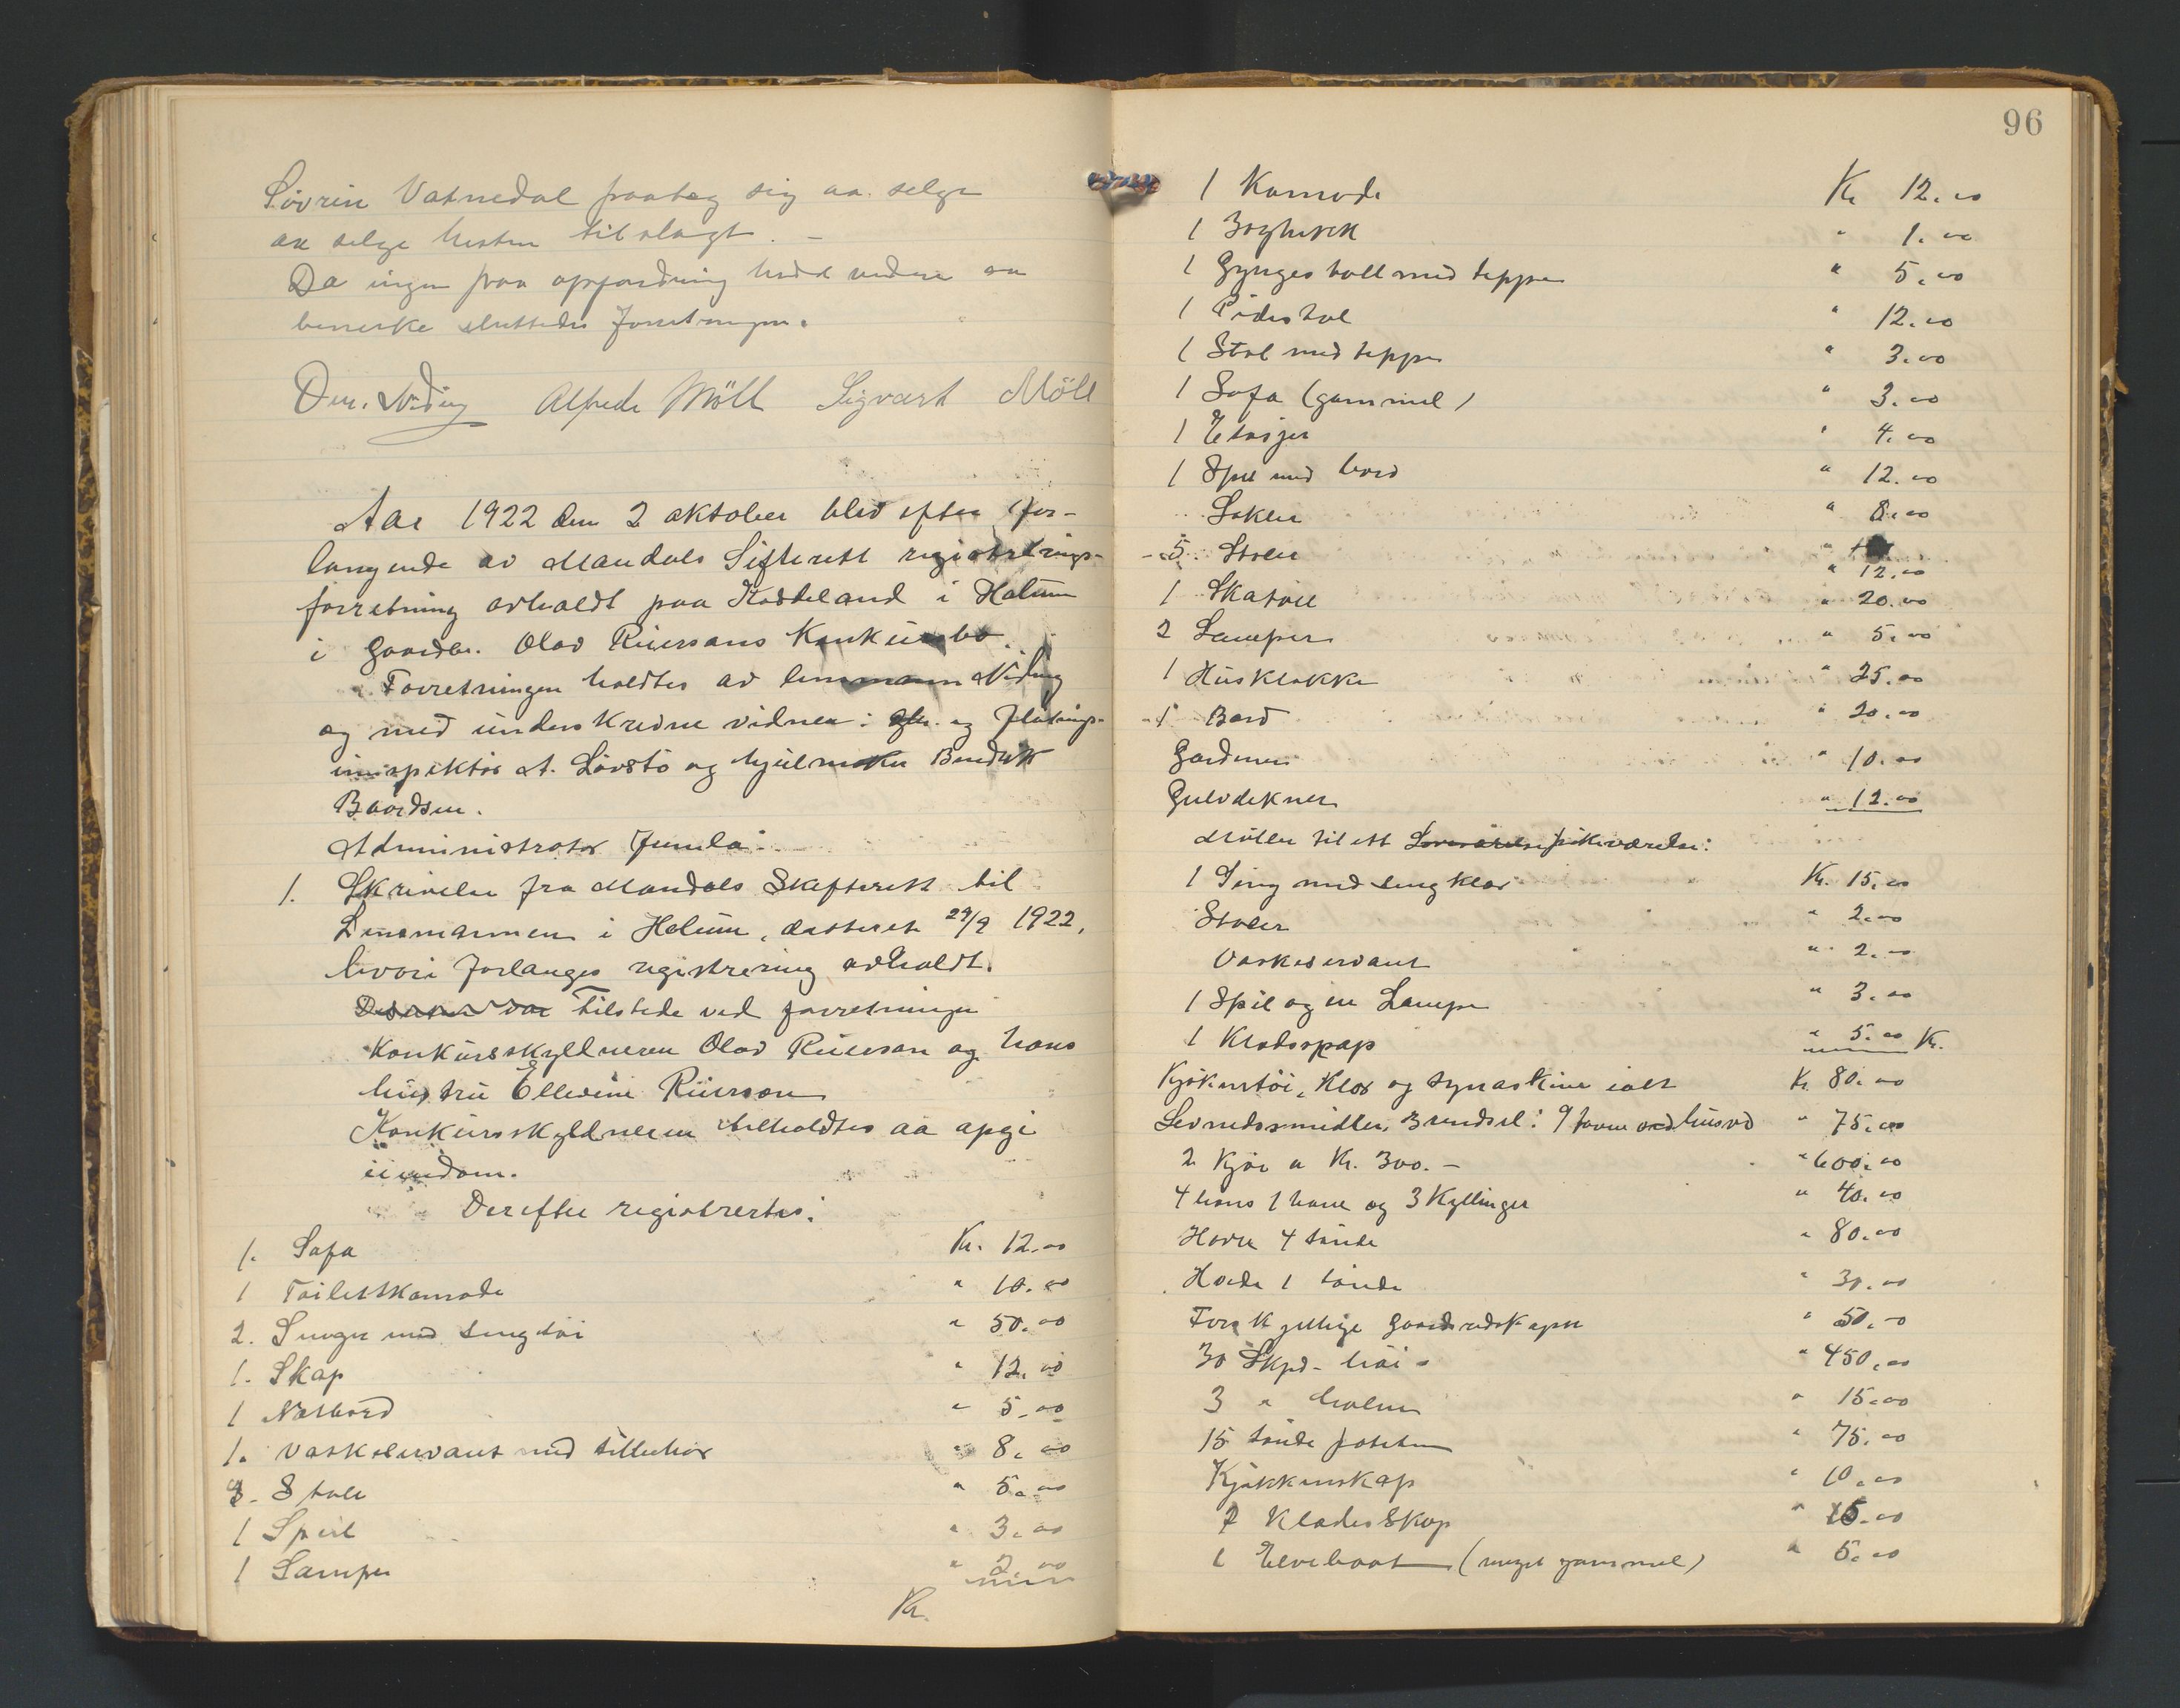 Sövrin Vatnedal paatog sig aa selge
aa selge hesten til slagt. –
Da ingen paa oppfordring hadde videre aa
bemerke sluttedes forretningen.
Alfred Möll Sigvart Möll
Aar 1922 den 2 oktober blev efter for-
langende av Mandals Sifterett registrerings-
forretning avholdt paa Kaddeland i Holum
i gaardbr. Olav Riiersans Konkursbo.
Forretningen holdtes av lensmann Niding
og med underskrevne vidner: og flötnings-
inspektör A. Lövstö og hjulmaker Bendikt
Baardsen.
Administrator fremla:
1. Skrivelse fra Mandals Skifterett til
Lensmannen i Holum, datteret 29/9 1922,
hvori forlanges registrering avholdt.
Tilstede ved forretningen
Konkursskyldneren Olav Riiersan og hans
hustru Ellevine Riiersan
Konkursskyldneren tilholdtes aa opgi
eiendom.
Derefter registrertes:
1. Sofa Kr. 12.00
1 Toilettkomode " 10.00
2. Senger med sengtöi " 50.00
1. Skap " 12.00
1 Natbord " 5.00
1. Vaskeservant med tilbehör " 8.00
3. Stole " 5.00
1 Speil " 3.00
1 Lampe " 2.00
Kr.
96
1 Komode Kr 12.00
1 Boghylle " 1.00
1 Gyngestoll med teppe " 5.00
1 Pidestal " 12.00
1 Stol med teppe " 3.00
1 Sofa (gammel) " 3.00
1 Etasjer " 4.00
1 Speil med bord " 12.00
" 8.00
5 Stoler " 12.00
1 Skatoll " 20.00
2 Lamper " 5.00
1 Husklokke " 25.00
1 Bord " 20.00
Gardiner " 10.00
Gulvdekner " 12.00
Möbler til ett pikeværelse:
1 Seng med sengklær Kr. 15.00
Stoler " 2.00
Vaskeservant " 2.00
1 Speil og en Lampe " 3.00
1 Kladsspap " 5.00 Kr.
Kjökentöi, Klær og symaskine ialt Kr. 80.00
Levnedsmidler, Brendsel: 9 favne ved husved " 75.00
2 Kjör a Kr. 300.– " 600.00
4 höns 1 hane og 3 Kyllinger " 40.00
Havre 4 tönde " 80.00
Hvede 1 tönde " 30.00
Forskjellige gaardsredskaper " 50.00
30 Skpd- höi " 450.00
3 " halm " 15.00
15 tönde poteter " 75.00
Kjökkenskap " 10.00
2 Klædesskap " 15.00
1 Elvebaat (meget gammel) " 5.00